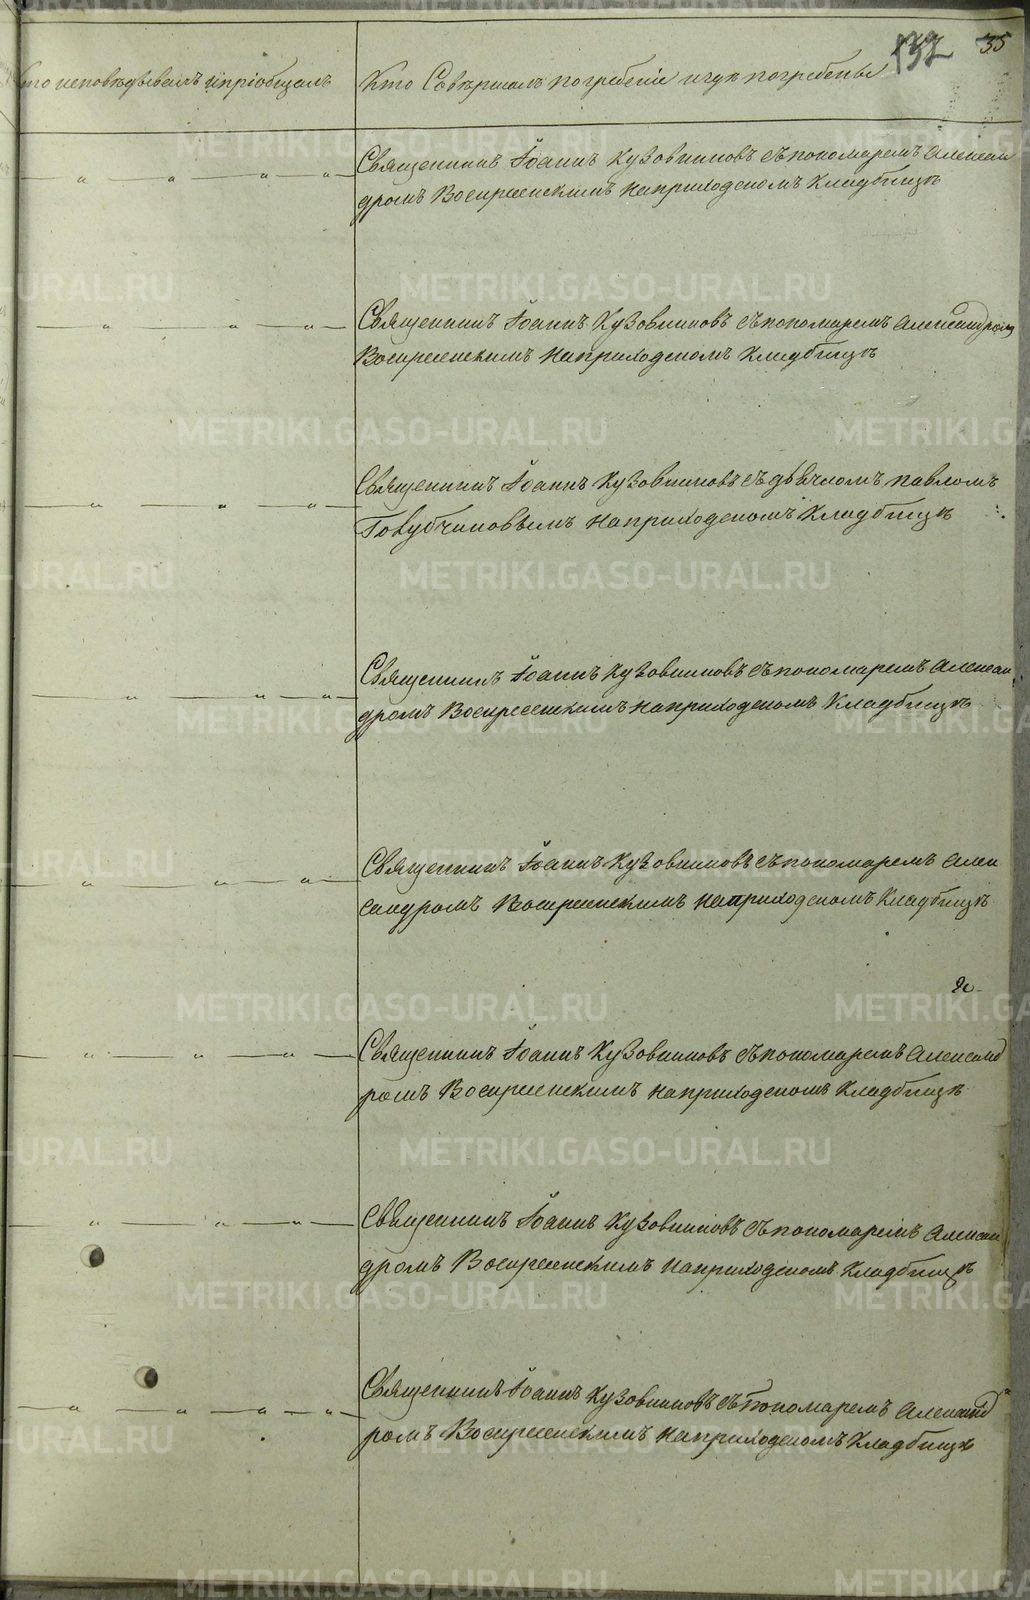 132 35
Кто исповѣдывалъ и пріобщалъ
Кто Совѣршалъ погребеніе и гдѣ погребены
Священникъ Іоаннъ Кузовниковъ съ пономаремъ Алексан
дромъ Воскресенскимъ на приходскомъ кладбищѣ
Священникъ Іоаннъ Кузовниковъ съ пономаремъ Александромъ
Воскресенскимъ на приходскомъ кладбищѣ
Священникъ Іоаннъ Кузовниковъ съ дьячкомъ Павломъ
Голубчиковымъ на приходскомъ кладбищѣ
Священникъ Іоаннъ Кузовниковъ съ пономаремъ Алексан
дромъ Воскресенскимъ на приходскомъ кладбищѣ
Священникъ Іоаннъ Кузовниковъ съ пономаремъ Алек
сандромъ Воскресенскимъ на приходскомъ кладбищѣ
Священникъ Іоаннъ Кузовниковъ съ пономаремъ Александ
ромъ Воскресенскимъ на приходскомъ кладбищѣ
Священникъ Іоаннъ Кузовниковъ съ пономаремъ Алексан
дромъ Воскресенскимъ на приходскомъ кладбищѣ
Священникъ Іоаннъ Кузовниковъ съ пономаремъ Александ
ромъ Воскресенскимъ на приходскомъ кладбищѣ
METRIKI.GASO-URAL.RU